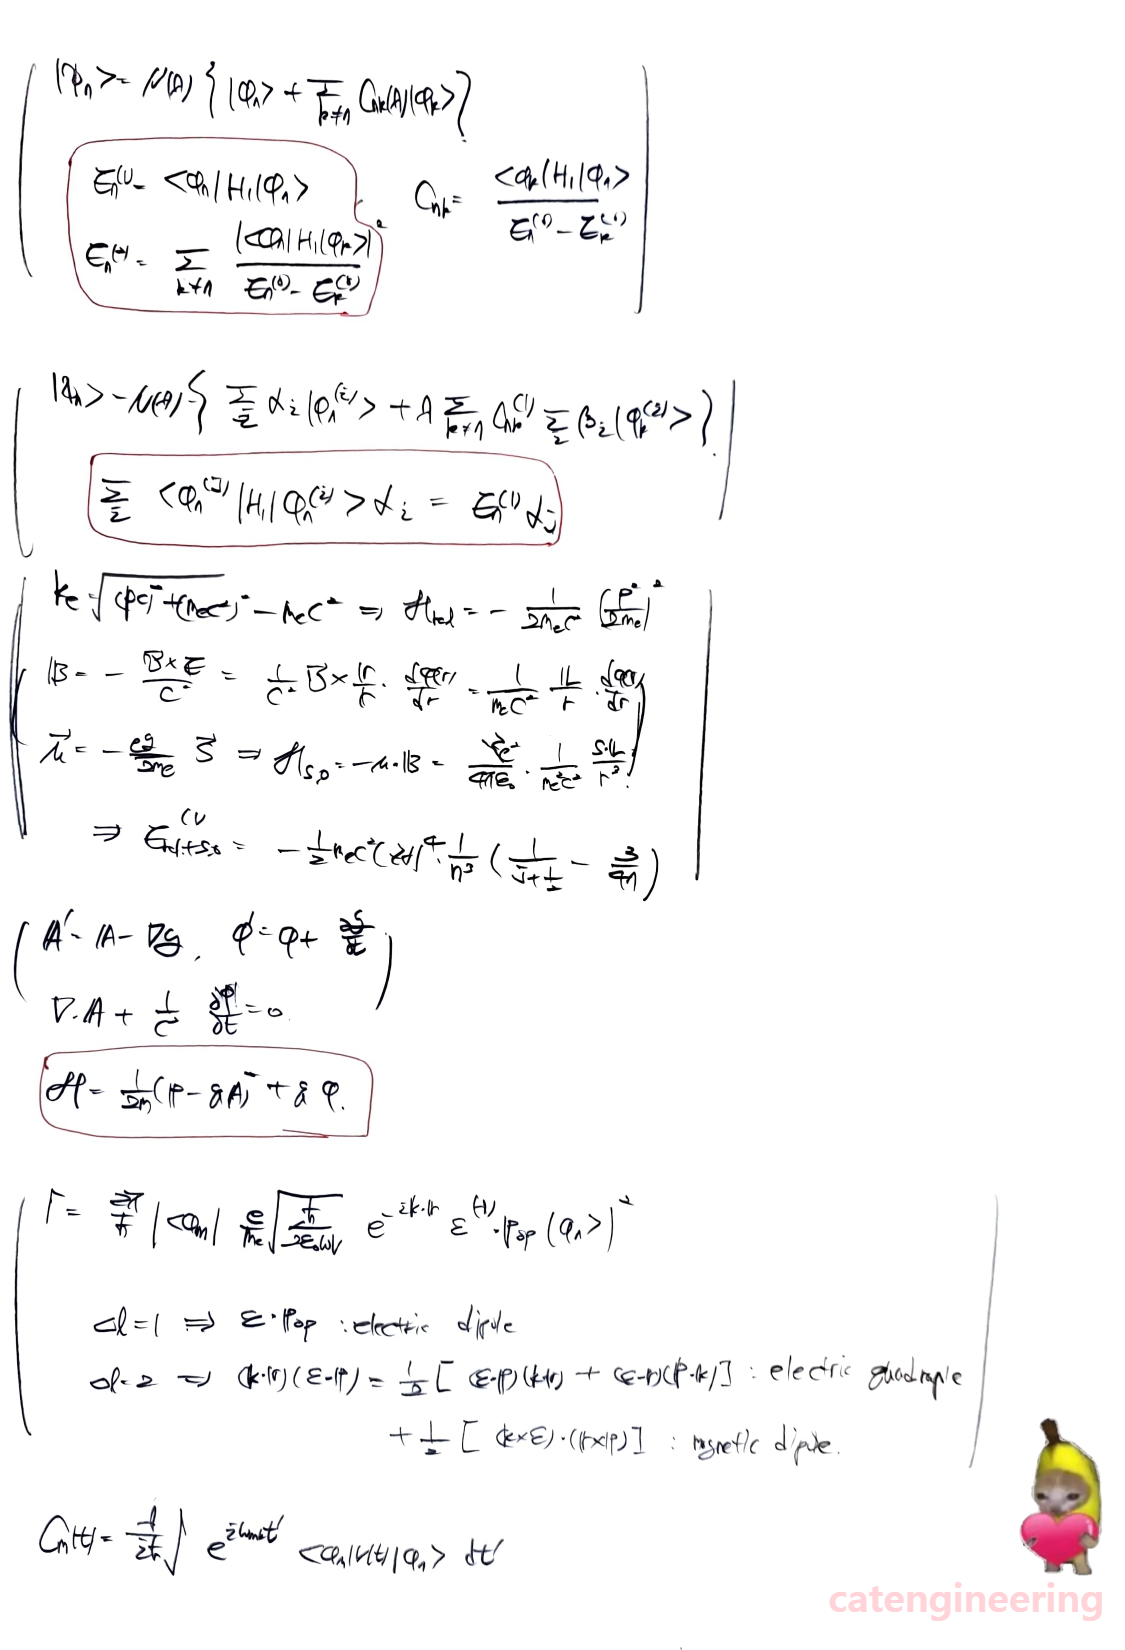 |φn> = N(λ) { |φn> + Σ_{k≠n} Cnk(λ)|φk> }
En^(1) = <φn|H1|φn>
Cnk = <φk|H1|φn> / En^(0) - Ek^(0)
En^(2) = Σ_{k≠n} |<φn|H1|φk>|² / En^(0) - Ek^(0)
|ψn> = N(λ) { Σ_i αi |φn^(i)> + λ Σ_{k≠n} Cnk^(1) Σ_i βi |φk^(i)> }
Σ_i <φn^(j)|H1|φn^(i)> αi = En^(1) αj
Ke = √((pc)² + (mec²)²) - mec² ⇒ Hrel = - 1/2mec² (p²/2me)²
B = - v×E/c² = 1/c² v × r/r · dφ(r)/dr = 1/mec² L/r · dφ(r)/dr
μ = - eg/2me S ⇒ Hs.o = -μ·B = Ze²/4πε0 · 1/me²c² S·L/r³
⇒ E^(1) rel+s.o = - 1/2 mec²(Zα)⁴ · 1/n³ ( 1/j+1/2 - 3/4n )
A' = A - ∇g, φ' = φ + ∂g/∂t
∇·A + 1/c² ∂φ/∂t = 0
H = 1/2m (p - qA)² + qφ.
Γ = 2π/ħ |<φm| e/me √(ħ/2ε0ωV) e^{-ik·r} ε^(λ)·Pop |φn>|²
Δl=1 ⇒ ε·Pop : electric dipole
Δl=2 ⇒ (k·r)(ε·p) = 1/2 [ (ε·p)(k·r) + (ε·r)(p·k) ] : electric quadrupole
+ 1/2 [ (k×ε)·(r×p) ] : magnetic dipole.
Cm(t) = 1/iħ ∫ e^{iωmnt'} <φm|V(t)|φn> dt'
catengineering